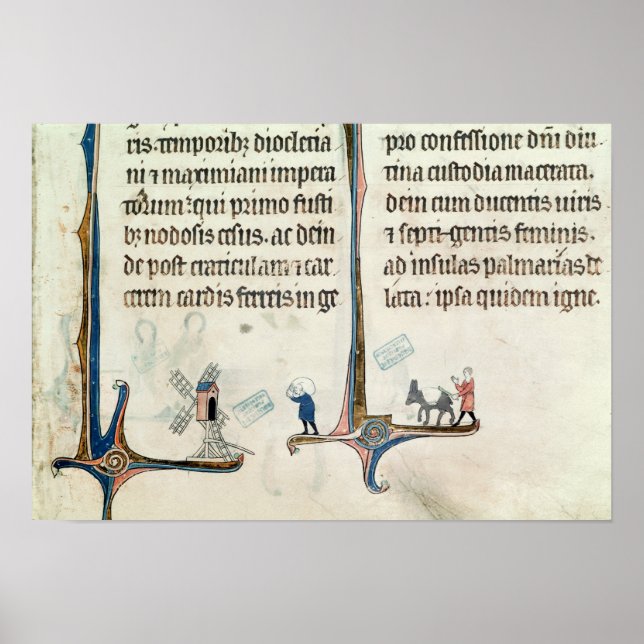 ris. temporibꝫ dioclecia
ni ⁊ maximiani impera
torum: qui primo fusti
bꝫ nodosis cesus. ac dein
de post craticulam ⁊ car
cerem cardis ferreis in ge
pro confessione dn̄i diu
tina custodia macerata.
dein cum ducentis uiris
⁊ septi-gentis feminis.
ad insulas palmarias de
lata: ipsa quidem igne.